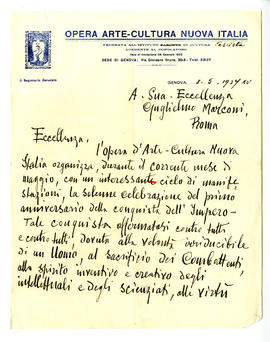 OPERA ARTE-CULTURA NUOVA ITALIA
FEDERATA ALL'ISTITUTO FASCISTA DI CULTURA
SEDE DI GENOVA:
Il Segretario Generale
GENOVA, 2.5.1937 XV
A Sua Eccellenza
Guglielmo Marconi,
Roma
Eccellenza,
l'opera d'Arte-Cultura Nuova
Italia organizza, durante il corrente mese di
maggio, con un interessante ciclo di manife
stazioni, la solenne celebrazione del primo
anniversario della conquista dell'Impero-
Tale conquista affermatasi contro tutti
e contro tutti, dovuta alla volontà irriducibile
di un Uomo, al sacrificio dei Combattenti
allo spirito inventivo e creativo degli
intellettuali e degli scienziati, alle virtù